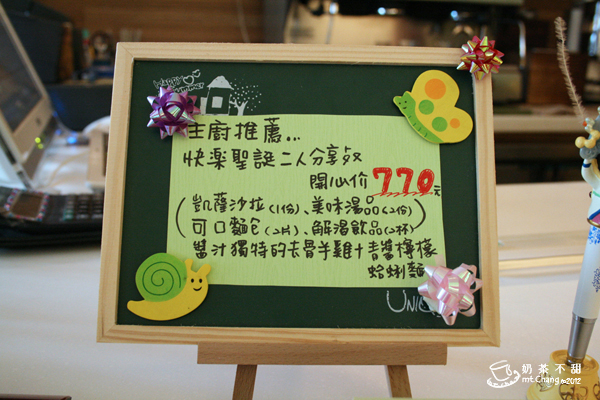 主廚推薦...
快楽聖誕二人分享餐
開心价770元
(凱薩沙拉(1份)、美味湯品(2份)
可口麵包(2片)、解渴飲品(2杯))
醬汁獨特的去骨半雞+青醬檸檬
蛤蜊麵
UNI
奶茶不甜
mt.Chang@2012